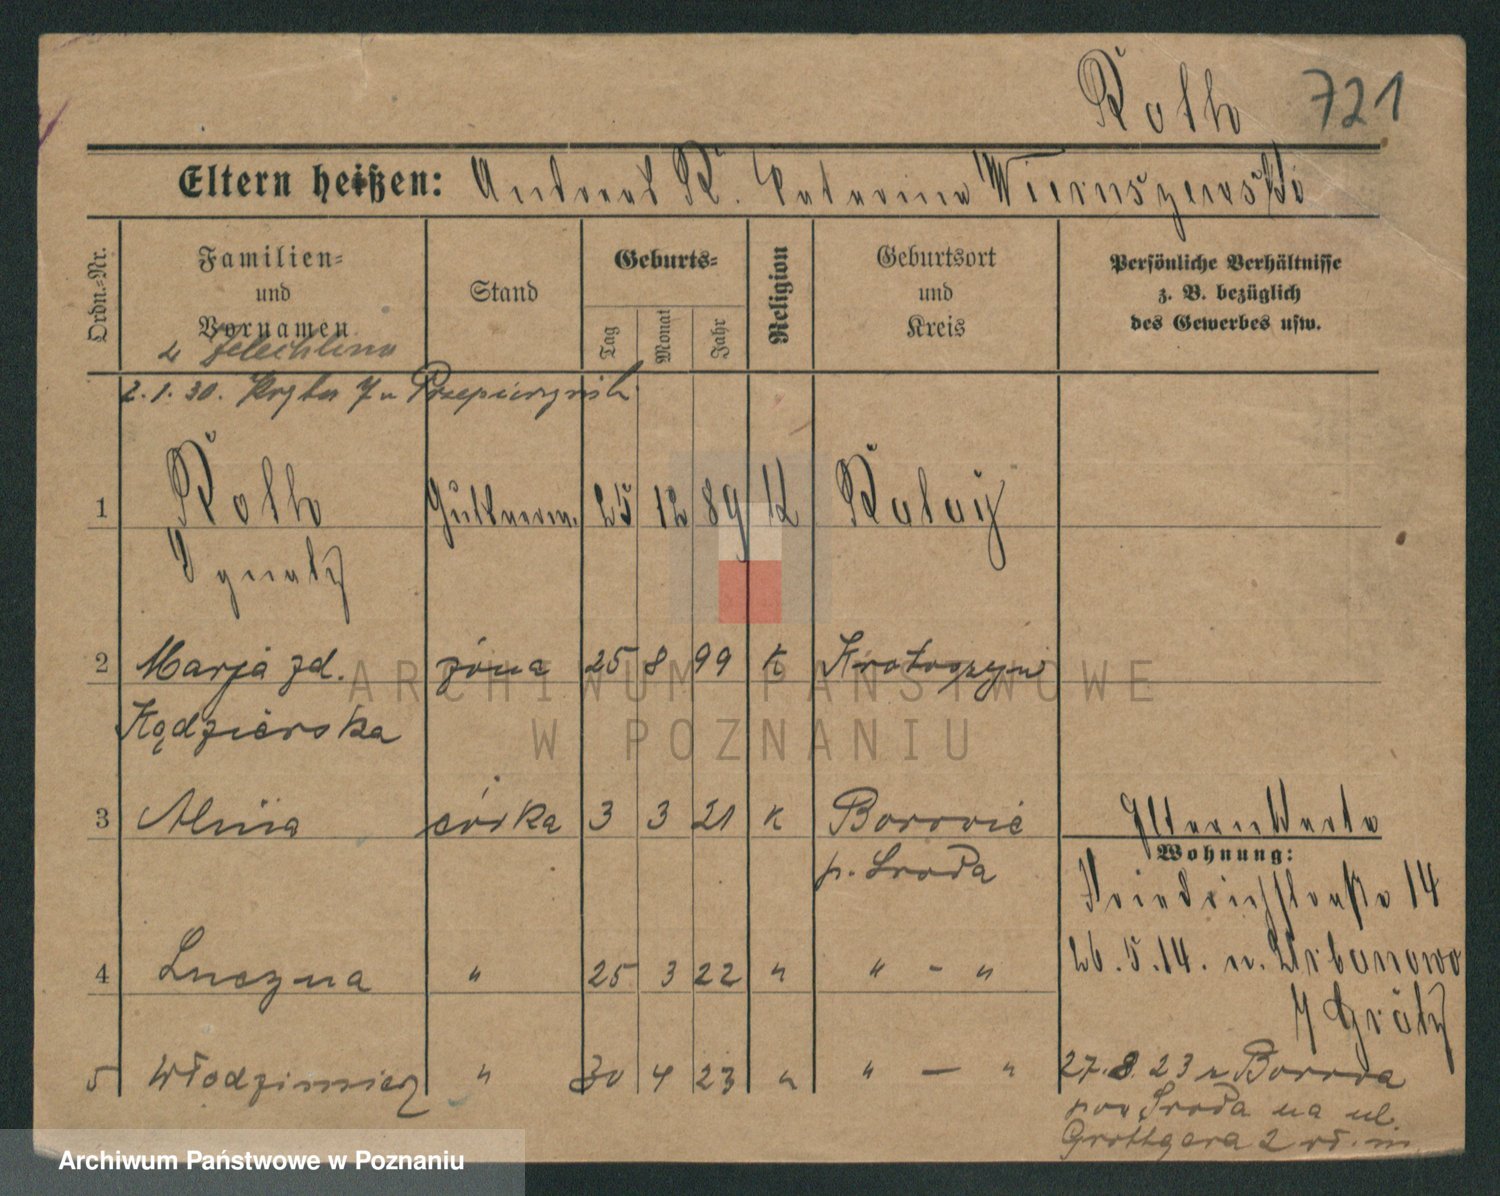 Roth 721
Eltern heißen: Andreas R. Katarina Wieruszewski
Ordn.-Nr.
Familien-
und
Vornamen
Stand
Geburts-
Tag
Monat
Jahr
Religion
Geburtsort
und
Kreis
Persönliche Verhältnisse
z. B. bezüglich
des Gewerbes usw.
2. 1. 30.
1 Roth 25 12 89 K Kalaij
Ignatz
2 Marja zd. żona 25 8 99 K Krotoszyn
Kądzierska
3 Alina córka 3 3 21 K Borowie
p. Sroda
4 Luczna " 25 3 22 " " - "
5 Włodzimierz " 30 4 23 " " — "
Eltern Warta
Wohnung:
Friedrichstraße 14
26. 5. 14. n. Urbanowo
Grätz
27. 8. 23 z Borowa
pow Sroda na ul.
Grottgera 2
ARCHIWUM PAŃSTWOWE
W POZNANIU
Archiwum Państwowe w Poznaniu